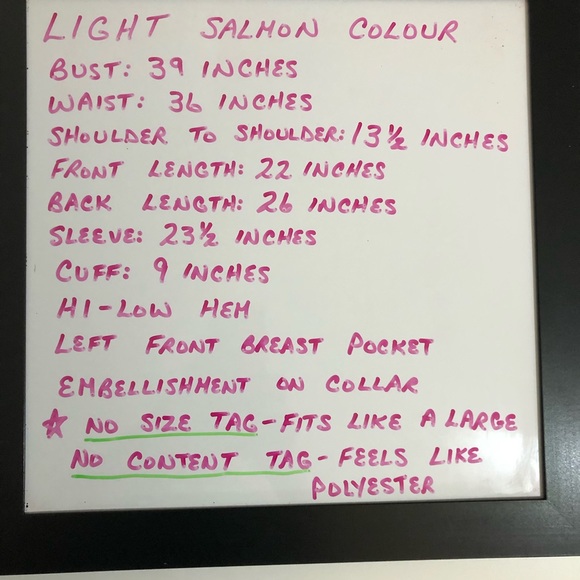 LIGHT SALMON COLOUR
BUST: 39 INCHES
WAIST: 36 INCHES
SHOULDER TO SHOULDER: 13½ INCHES
FRONT LENGTH: 22 INCHES
BACK LENGTH: 26 INCHES
SLEEVE: 23½ INCHES
CUFF: 9 INCHES
HI-LOW HEM
LEFT FRONT BREAST POCKET
EMBELLISHMENT ON COLLAR
☆ NO SIZE TAG-FITS LIKE A LARGE
NO CONTENT TAG- FEELS LIKE
POLYESTER